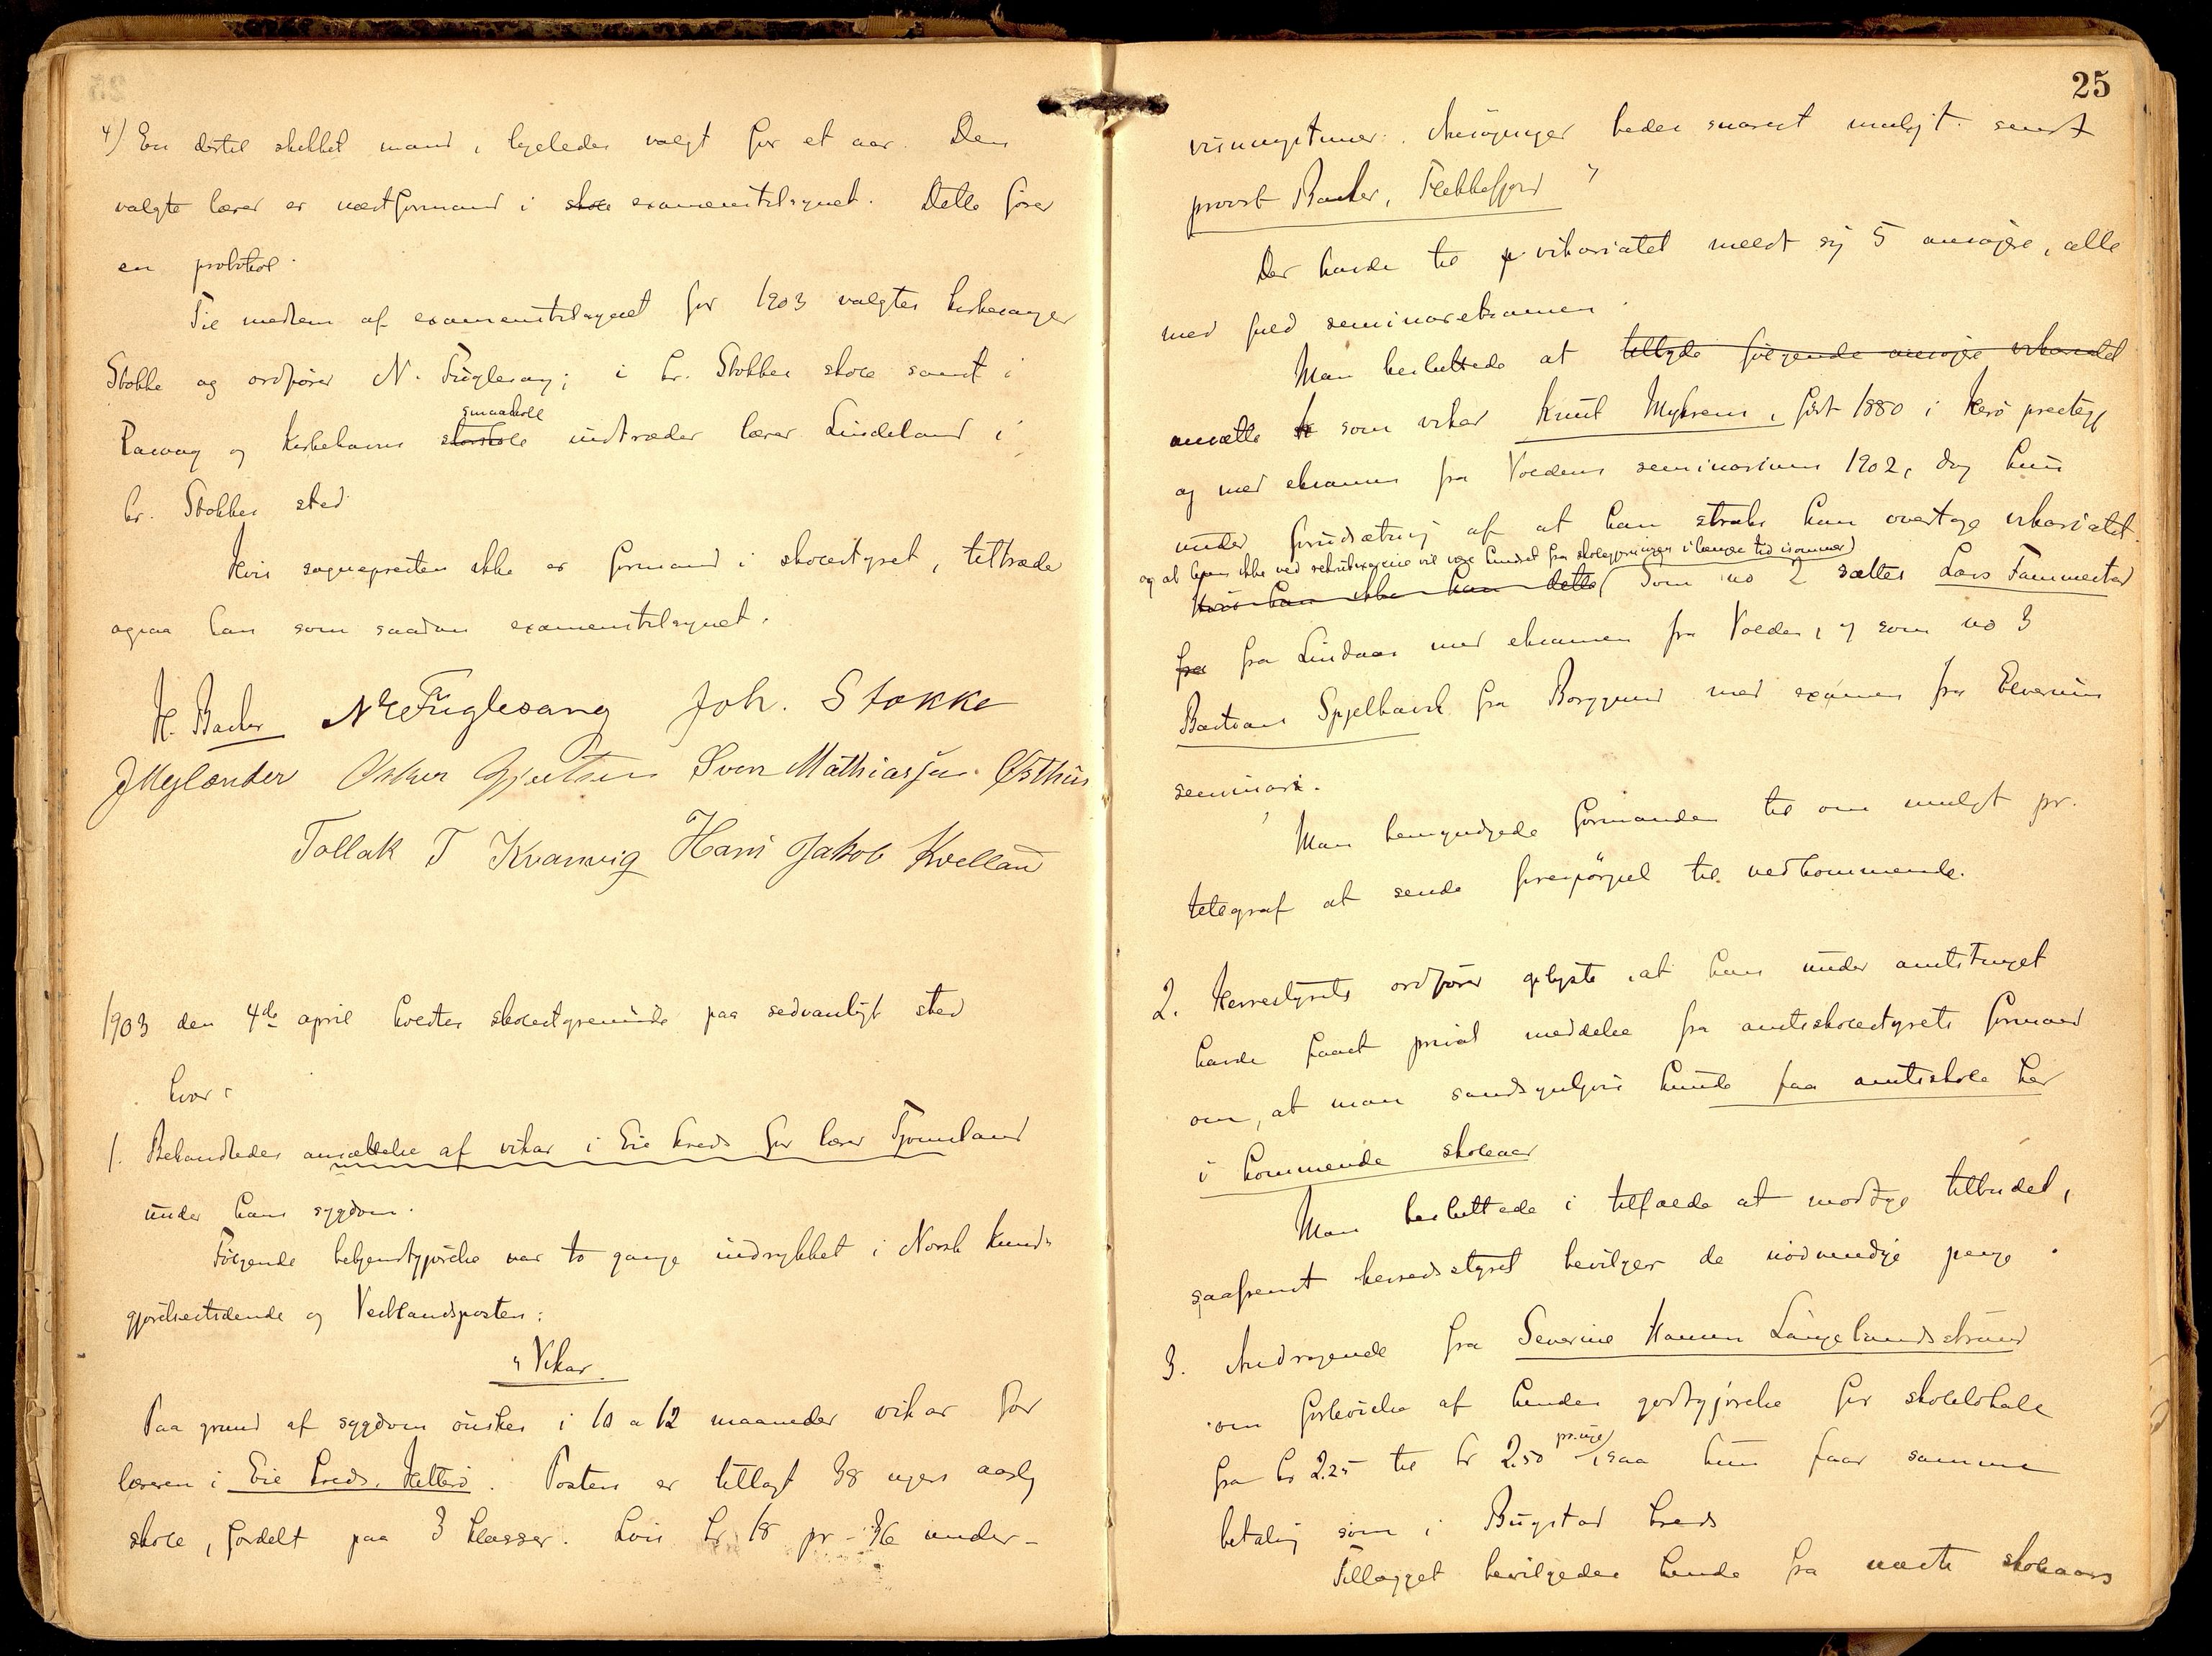 4) En dertil skikket mand, ligeledes valgt for et aar. Den
valgte lærer er næstformand i skole examenstilsynet. Dette fører
en protokol.
Til medlem af examenstilsynet for 1903 valgtes kirkesanger
Stokke og ordfører N. Fuglesang; i hr. Stokkes skole samt i
smaaskole
Rasvag og Kirkehavns storskole indtræder lærer Lindeland i
hr. Stokkes sted.
Hvis sognepresten ikke er formand i skolestyret, tiltræder
ogsaa han som saadan examenstilsynet.
K. Barler N Fuglesang Joh. Stokke
J Meglænder Oskar Gjertsen Sven Mathiassen Østhus
Tollak T Kvanvig Hans Jakob Kvelland
1903 den 4de april holdtes skolestyremøde paa sedvanligt sted
hvor:
1. Behandledes ansættelse af vikar i Eie kreds for lærer Tjomsland
under hans sygdom.
Følgende bekjendtgjørelse var to gange indrykket i Norsk Kund-
gjørelsestidende og Vestlandsposten:
"Vikar.
Paa grund af sygdom ønskes i 10 a 12 maaneder vikar for
læreren i Eie kreds, Hitterø. Posten er tillagt 38 ugers aarlig
skole, fordelt paa 3 klasser. Løn kr 18 pr 36 under-
25
visningstimer. Ansøgninger bedes snarest muligt sendt
provst Barler, Flekkefjord"
Der havde til vikariatet meldt sig 5 ansøgere, alle
med fuld seminarexamen.
Man besluttede at tilbyde følgende ansøger vikariatet
ansætte som vikar Knut Myhrens, født 1880 i Herø prestegj
og med eksamen fra Voldens seminarium 1902, dog kun
under forudsætning af at han straks kan overtage vikariatet
og at han ikke ved rekrutexercise vil være hindret fra skolegjerningen i længere tid isommer)
Hvis han ikke kan dette Som no 2 sættes Lars Fammestad
fra fra Lindaas med eksamen fra Volden, og som no 3
Bastians Spjelkavik fra Borgund med examen fra Elverums
seminari.
Man bemyndigede formanden til om muligt pr.
telegraf at sende forespørgsel til vedkommende.
2. Herredstyrets ordfører oplyste, at han under amtstinget
havde faaet privat meddelelse fra amtsskolestyrets formand
om, at man sandsynligvis kunde faa amtsskole her
i kommende skoleaar
Man besluttede i tilfælde at modtage tilbudet,
saafremt herredsstyret bevilger de nødvendige penge.
3. Andragende fra Severine Hansen Langelandsstrand
om forhøielse af hendes godtgjørelse for skolelokale
pr. uge
fra kr 2.25 til kr 2.50, saa hun faar samme
betaling som i Bugstad kreds
Tillægget bevilgedes hende fra næste skoleaars